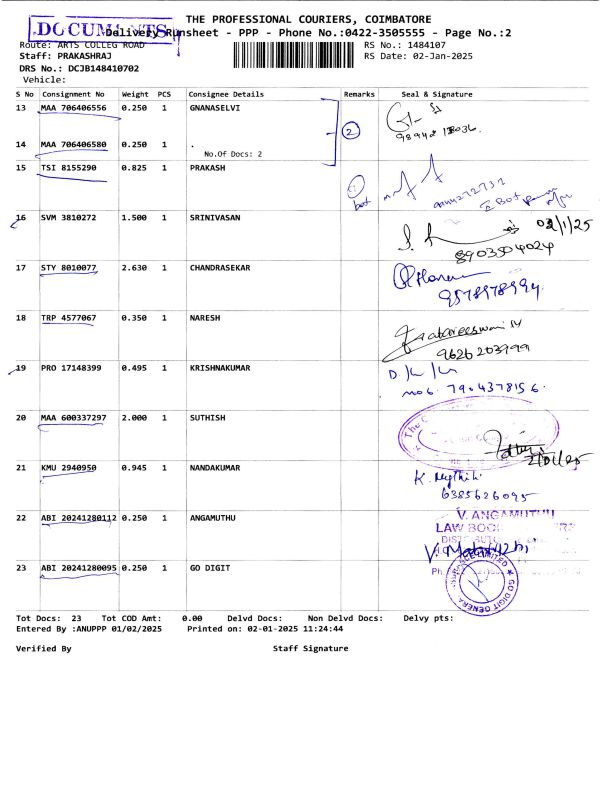 THE PROFESSIONAL COURIERS, COIMBATORE
DOCUMENTS
Delivery Runsheet - PPP - Phone No.:0422-3505555 - Page No.:2
Route: ARTS COLLEG ROAD
RS No.: 1484107
Staff: PRAKASHRAJ
RS Date: 02-Jan-2025
DRS No.: DCJB148410702
Vehicle:
S No Consignment No Weight PCS Consignee Details Remarks Seal & Signature
13 MAA 706406556 0.250 1 GNANASELVI
2
14 MAA 706406580 0.250 1 .
No.Of Docs: 2
15 TSI 8155290 0.825 1 PRAKASH
16 SVM 3810272 1.500 1 SRINIVASAN
8903504024
17 STY 8010077 2.630 1 CHANDRASEKAR
18 TRP 4577067 0.350 1 NARESH
9626203999
19 PRO 17148399 0.495 1 KRISHNAKUMAR
20 MAA 600337297 2.000 1 SUTHISH
21 KMU 2940950 0.945 1 NANDAKUMAR
6385626095
22 ABI 20241280112 0.250 1 ANGAMUTHU
V. ANGAMUTHU
LAW BOO
23 ABI 20241280095 0.250 1 GO DIGIT
GO DIGIT GENERA
Tot Docs: 23 Tot COD Amt: 0.00 Delvd Docs: Non Delvd Docs: Delvy pts:
Entered By :ANUPPP 01/02/2025 Printed on: 02-01-2025 11:24:44
Verified By Staff Signature